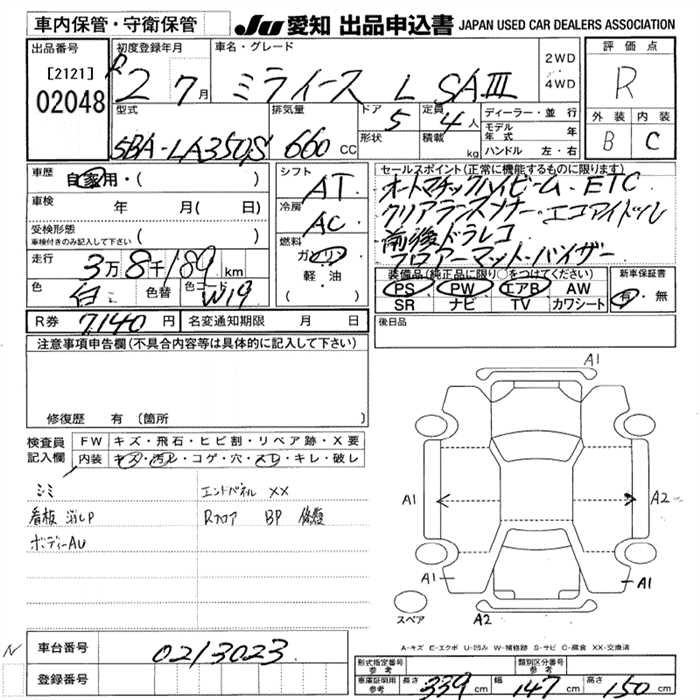 車内保管・守衛保管
JU 愛知 出品申込書 JAPAN USED CAR DEALERS ASSOCIATION
出品番号
[2121]
02048
初度登録年月
R2 7月
車名・グレード
ミライース L SAⅢ
2WD
・
4WD
評価点
R
外装 内装
B C
型式
5BA-LA350S
排気量
660 cc
ドア
5
形状
定員
4人
積載
kg
ディーラー・並行
モデル年式 年
ハンドル 左・右
車歴
自家用・( )
車検 年 月( 日)
受検形態
車検付きのみ記入して下さい ( )
走行 3万8千189 km
色 白 色替 色コード W19
シフト
AT
冷房
AC
燃料
ガソリン
軽・油
( )
セールスポイント(正常に機能するものに限ります)
オートマチックハイビーム・ETC
クリアランスソナー・エコアイドル
前後ドラレコ
フロアーマット・バイザー
装備品(純正品に限り○をつけてください)
PS PW エアB AW
SR ナビ TV カワシート
新車保証書
有・無
R券 7140円 名変通知期限 月 日
後日品
注意事項申告欄(不具合内容等は具体的に記入して下さい)
修復歴 有(箇所 )
検査員記入欄
FW キズ・飛石・ヒビ割・リペア跡・X要
内装 キズ・汚レ・コゲ・穴・スレ・キレ・破レ
シミ エンドパネル XX
看板消しP Rフロア BP 修理
ボディーAU
A1
A1
A2
A1
A1
スペア
A2
A-キズ E-エクボ U-凹み W-補修跡 S-サビ C-腐食 XX-交換済
N
車台番号 0213023
登録番号
形式指定番号 参考
類別区分番号 参考
車庫証明用 参考 長さ 339cm 幅 147cm 高さ 150cm